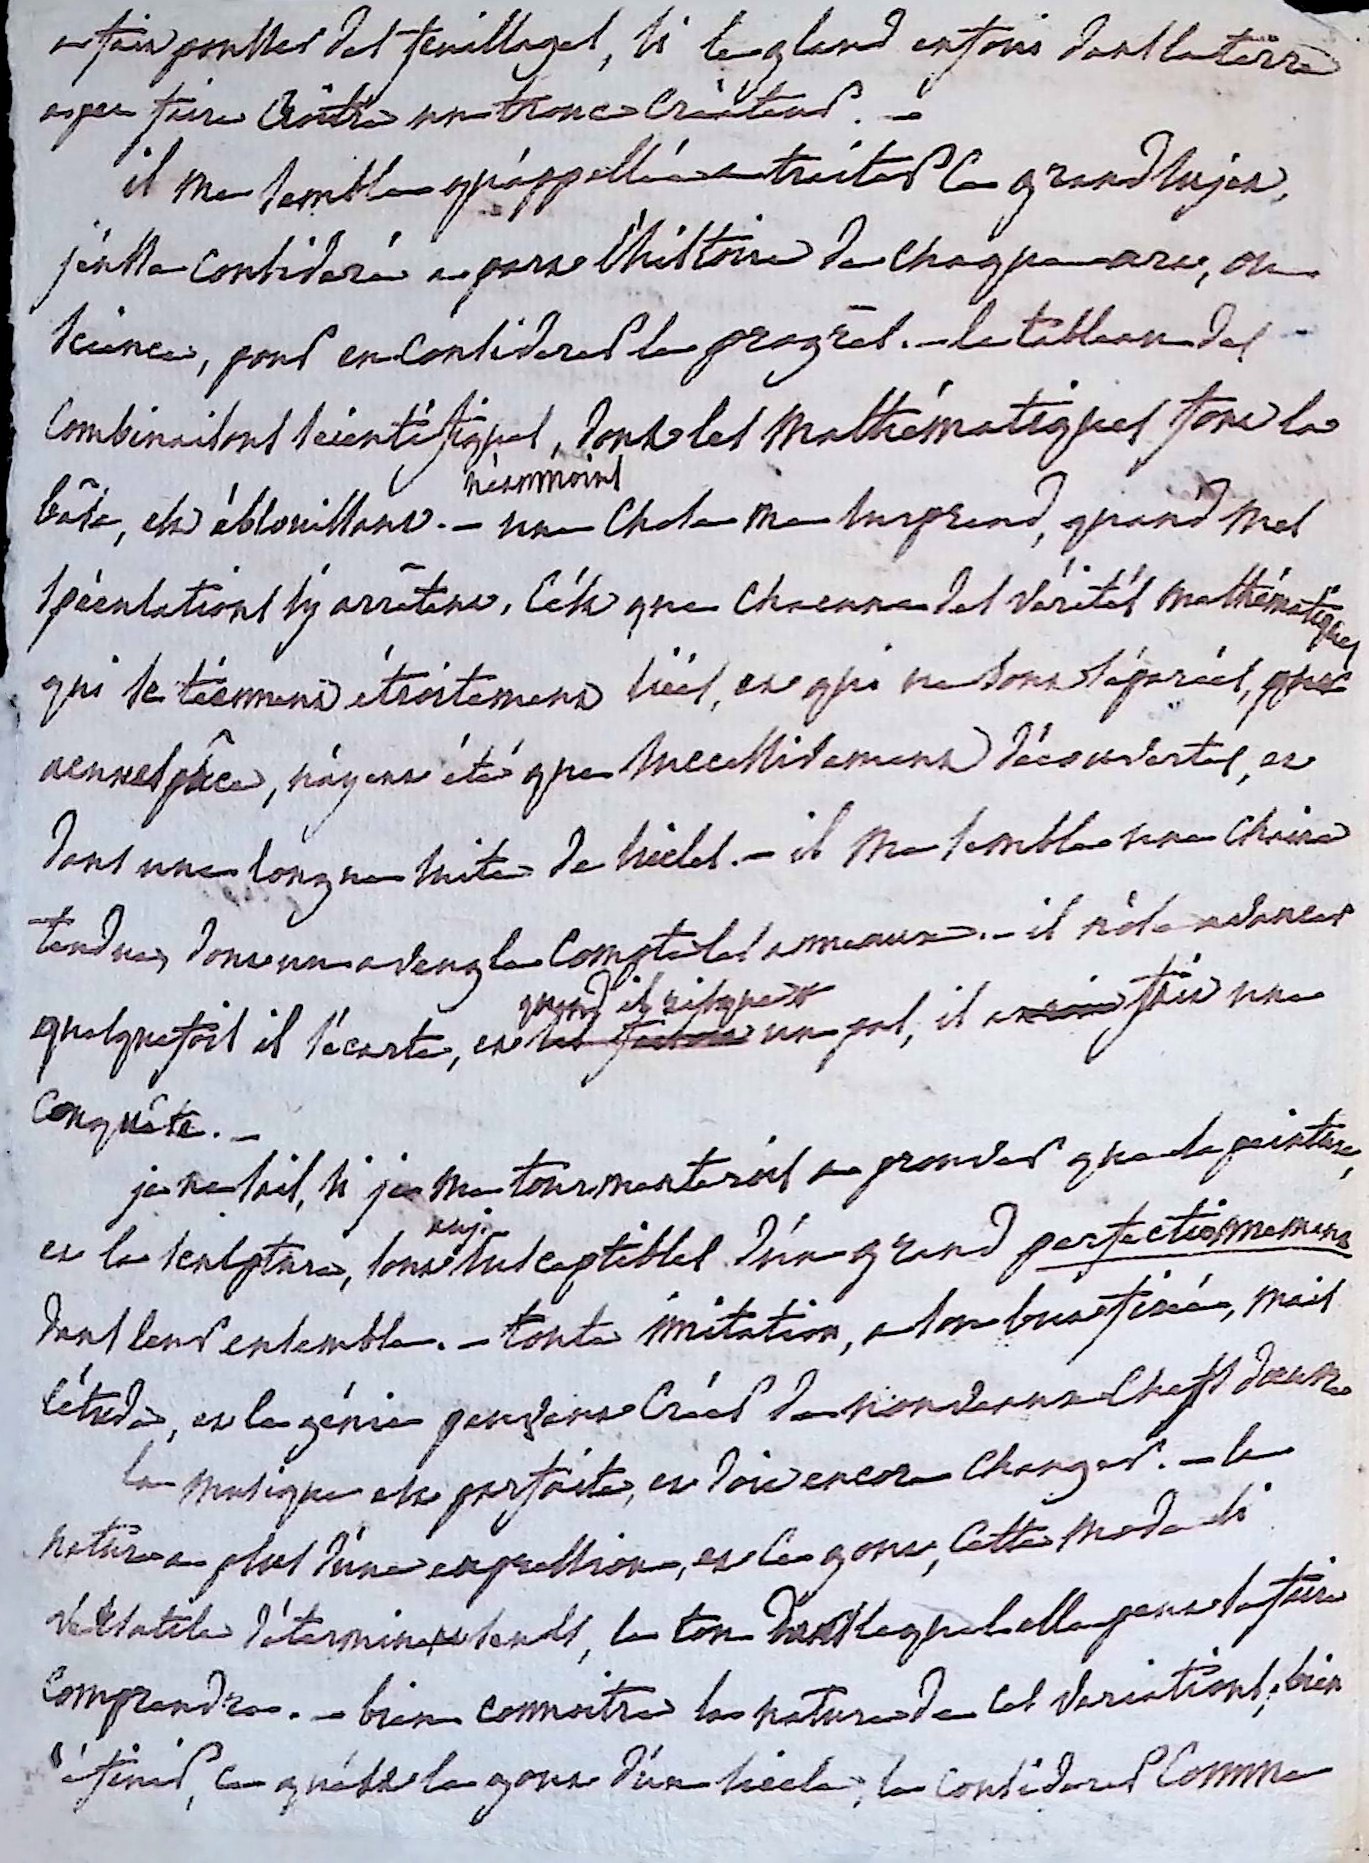 a fait pousser des feuillages, si le gland enfoui dans la terre
a pu faire croître un tronc créateur. –
il me semble qu'appellée a traiter ce grand sujet,
j'eusse considéré a part l'histoire de chaque art, ou
science, pour en considerer le progrès. – le tableau des
combinaisons scientifiques, dont les mathématiques font la
bâse, est éblouissant. – une chose néanmoins me surprend, quand mes
spéculations s'y arrêtent. c'est que chacune des vérités mathématiques
qui se tiennent étroitement liées, et qui ne sont séparées, par
aucun espâce, n'ayent été que successivement découvertes, et
dans une longue suite de siècles. – il me semble une chaine
tendue, dont un aveugle compte les anneaux. – il n'ose avancer
quelquefois il s'écarte, et quand il risque un pas, il a fait une
conquête. –
je ne sais, si je me tourmenterois a prouver que la peinture,
et la sculpture, sont auj. susceptibles d'un grand perfectionnement
dans leur ensemble. – toute imitation, a son but fixée, mais
l'étude, et le génie peuvent créer de nouveaux chefs d'œuvre
la musique est parfaite, et doit encore changer. – la
nature a plus d'une expression, et le gout, cette mode si
versatile détermine seul, le ton dans lequel elle peut se faire
comprendre. – bien connoitre la nature de ces variations, bien
définir, ce qu'est le gout d'un siècle, le considerer comme